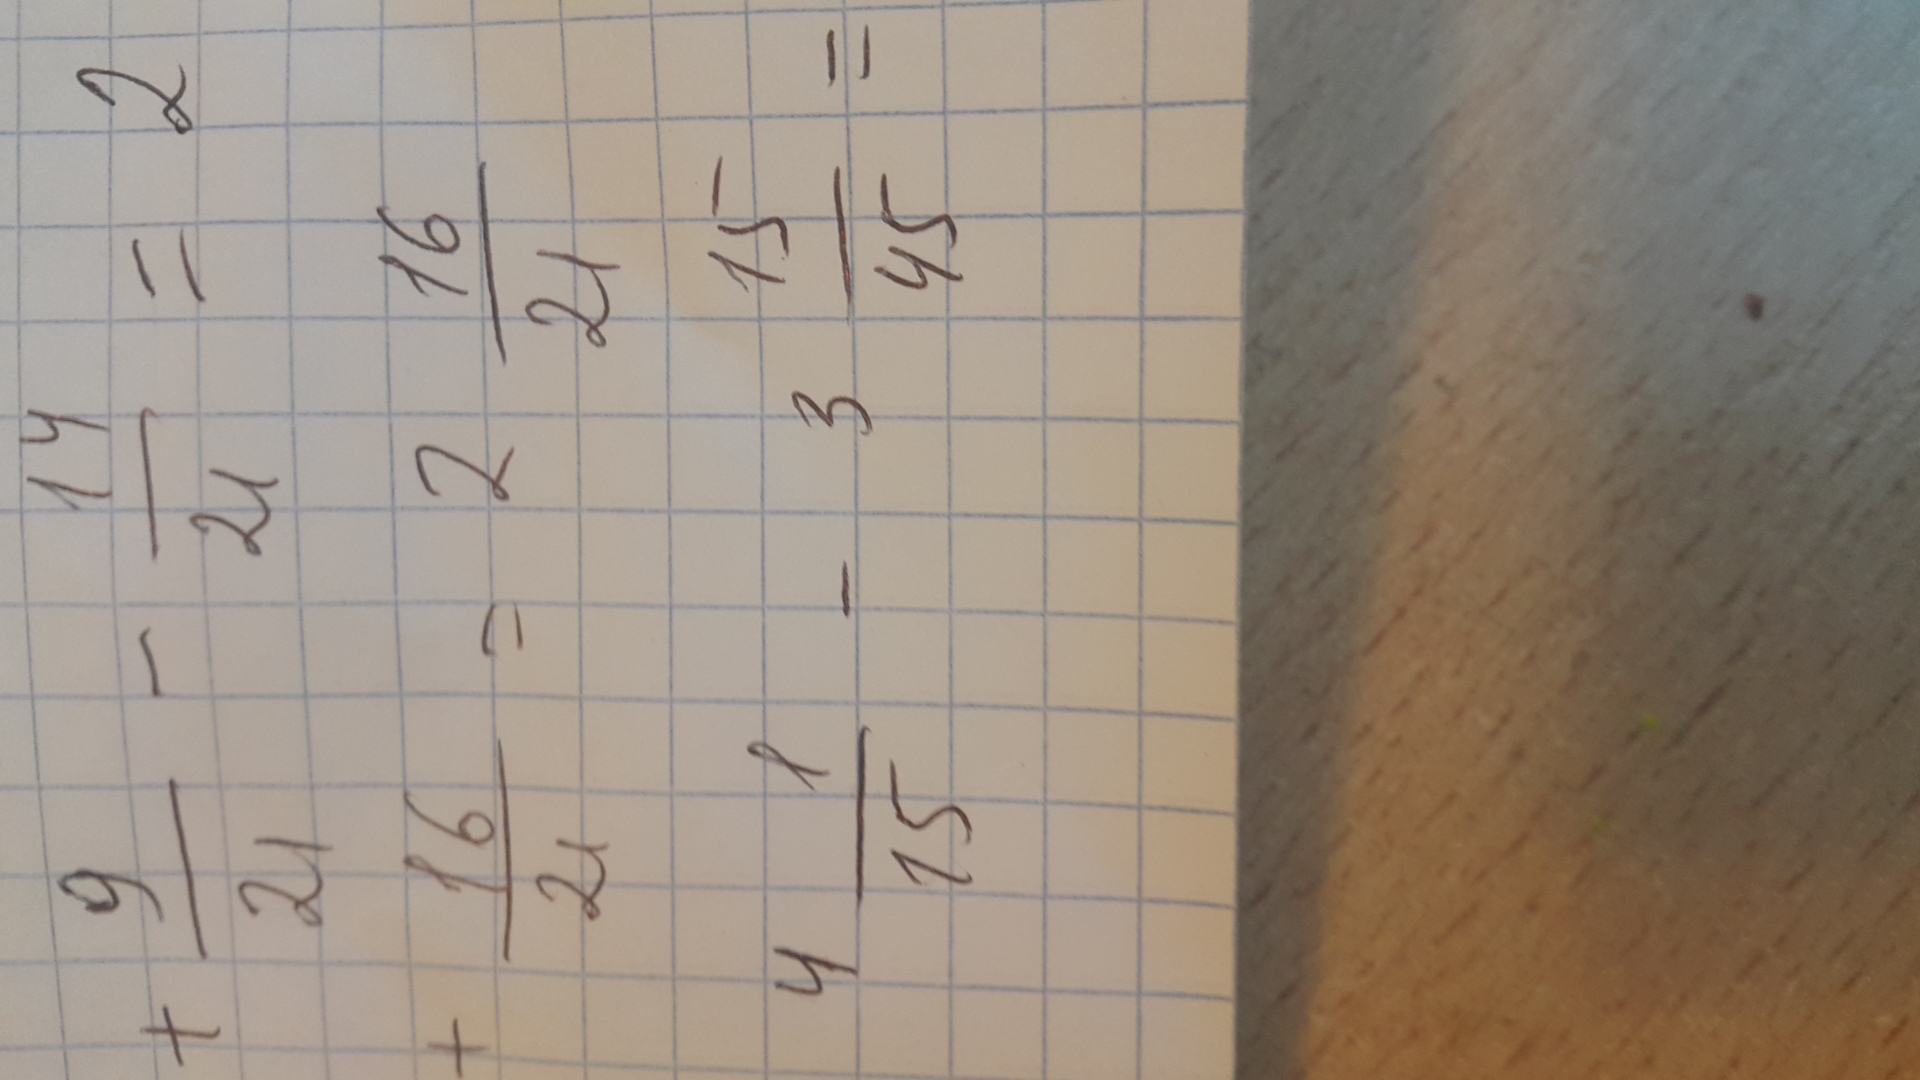 + 9/21 - 14/21 = 2
+ 16/21 = 2 16/21
4 1/15 - 3 15/45 =